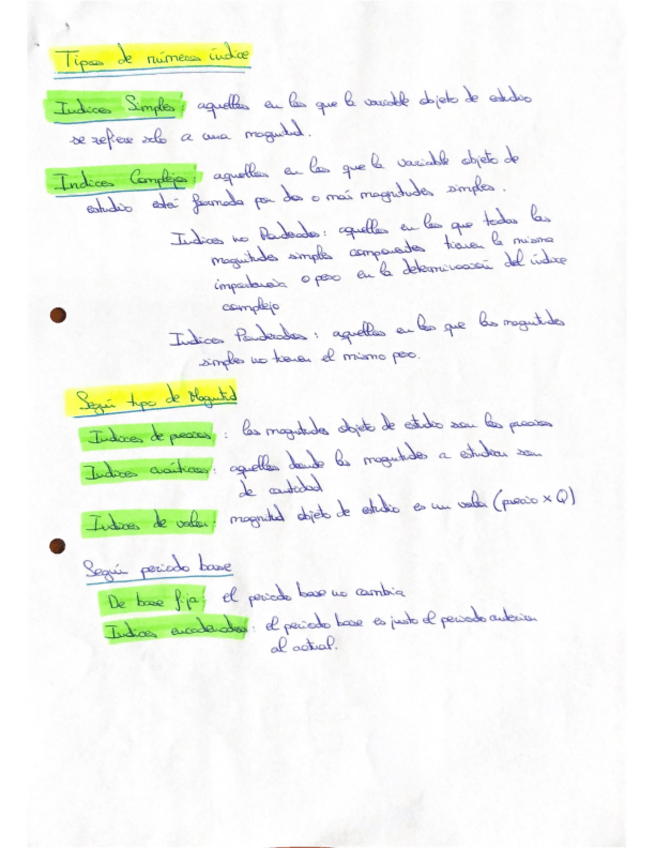 Tipos de números índice
Indices Simples: aquellos en los que la variable objeto de estudio
se refiere solo a una magnitud.
Indices Complejos: aquellos en los que la variable objeto de
estudio está formada por dos o más magnitudes simples.
Indices no Ponderados: aquellos en los que todas las
magnitudes simples componentes tienen la misma
importancia o peso en la determinación del índice
complejo
Indices Ponderados: aquellos en los que las magnitudes
simples no tienen el mismo peso.
Según tipo de Magnitud
Indices de precios: las magnitudes objeto de estudio son los precios
Indices cuánticos: aquellos donde las magnitudes a estudiar son
de cantidad
Indices de valor: magnitud objeto de estudio es un valor (precio x Q)
Según periodo base
De base fija: el periodo base no cambia
Indices encadenados: el periodo base es justo el periodo anterior
al actual.